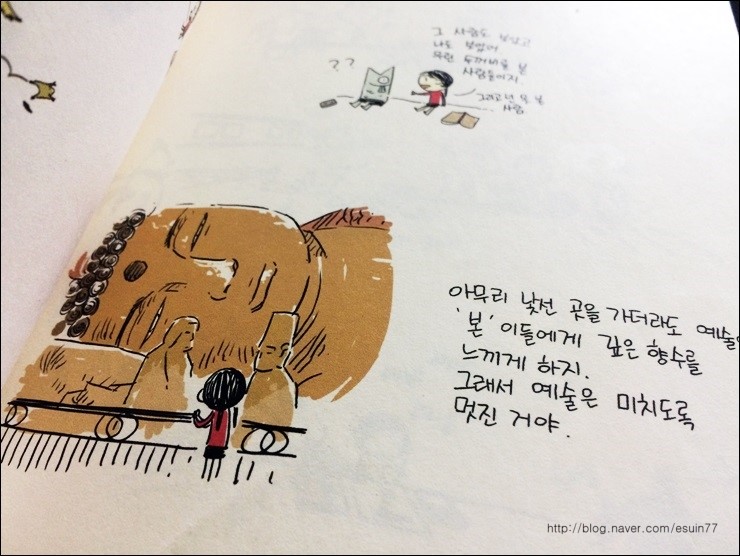 그 사람도 보았고
나는 보았어
우린
사람들이지.
??
사람
아무리 낯선 곳을 가더라도 예술
'본' 이들에게 깊은 향수를
느끼게 하지.
그래서 예술은 미치도록
멋진 거야.
http://blog.naver.com/esuin77